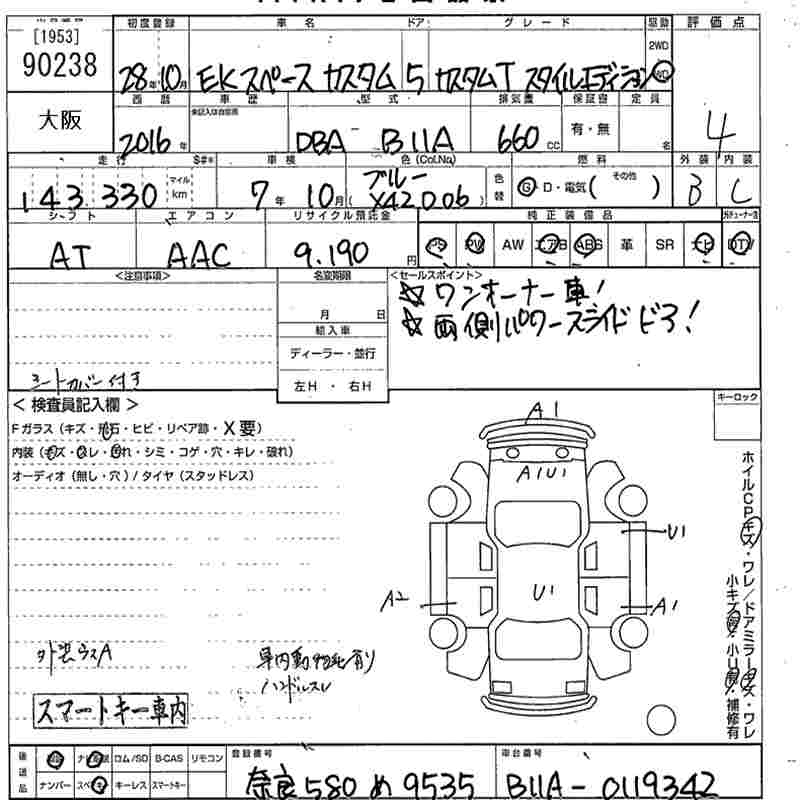 [1953]
90238
大阪
初度登録 車名 ドア グレード 駆動 評価点
28年10月 EKスペース カスタム 5 カスタムT スタイルエディション 2WD 4WD
4
西暦 車歴 型式 排気量 保証書 定員
2016年 DBA B11A 660cc 有・無 名
走行 車検 色(Col.No.) 燃料 外装 内装
143,330 マイル km 7年10月 ブルー X42006 色替 G・D・電気( その他 ) B C
シフト エアコン リサイクル預託金 純正装備品
AT AAC 9,190円 PS PW AW エアB ABS 革 SR ナビ DTV
<注意事項> 名変期限 <セールスポイント>
☆ ワンオーナー車!
☆ 両側パワースライドドア!
月 日
輸入車
ディーラー・並行
左H・右H
シートカバー付き
キーロック
<検査員記入欄>
Fガラス(キズ・飛石・ヒビ・リペア跡・X要)
内装(キズ・スレ・汚れ・シミ・コゲ・穴・キレ・破れ)
オーディオ(無し・穴)/タイヤ(スタッドレス)
A1
A1U1
U1
A2
U1
A1
ホイルCPキズ・ワレ/ドアミラーキズ・ワレ
小キズ有・小U有・補修有
外装ウスA
車内動物毛有り
ハンドルスレ
スマートキー車内
後送品 ロム/SD B-CAS リモコン
ナンバー キーレス スマートキー
登録番号 車台番号
奈良580 め 9535 B11A-0119342